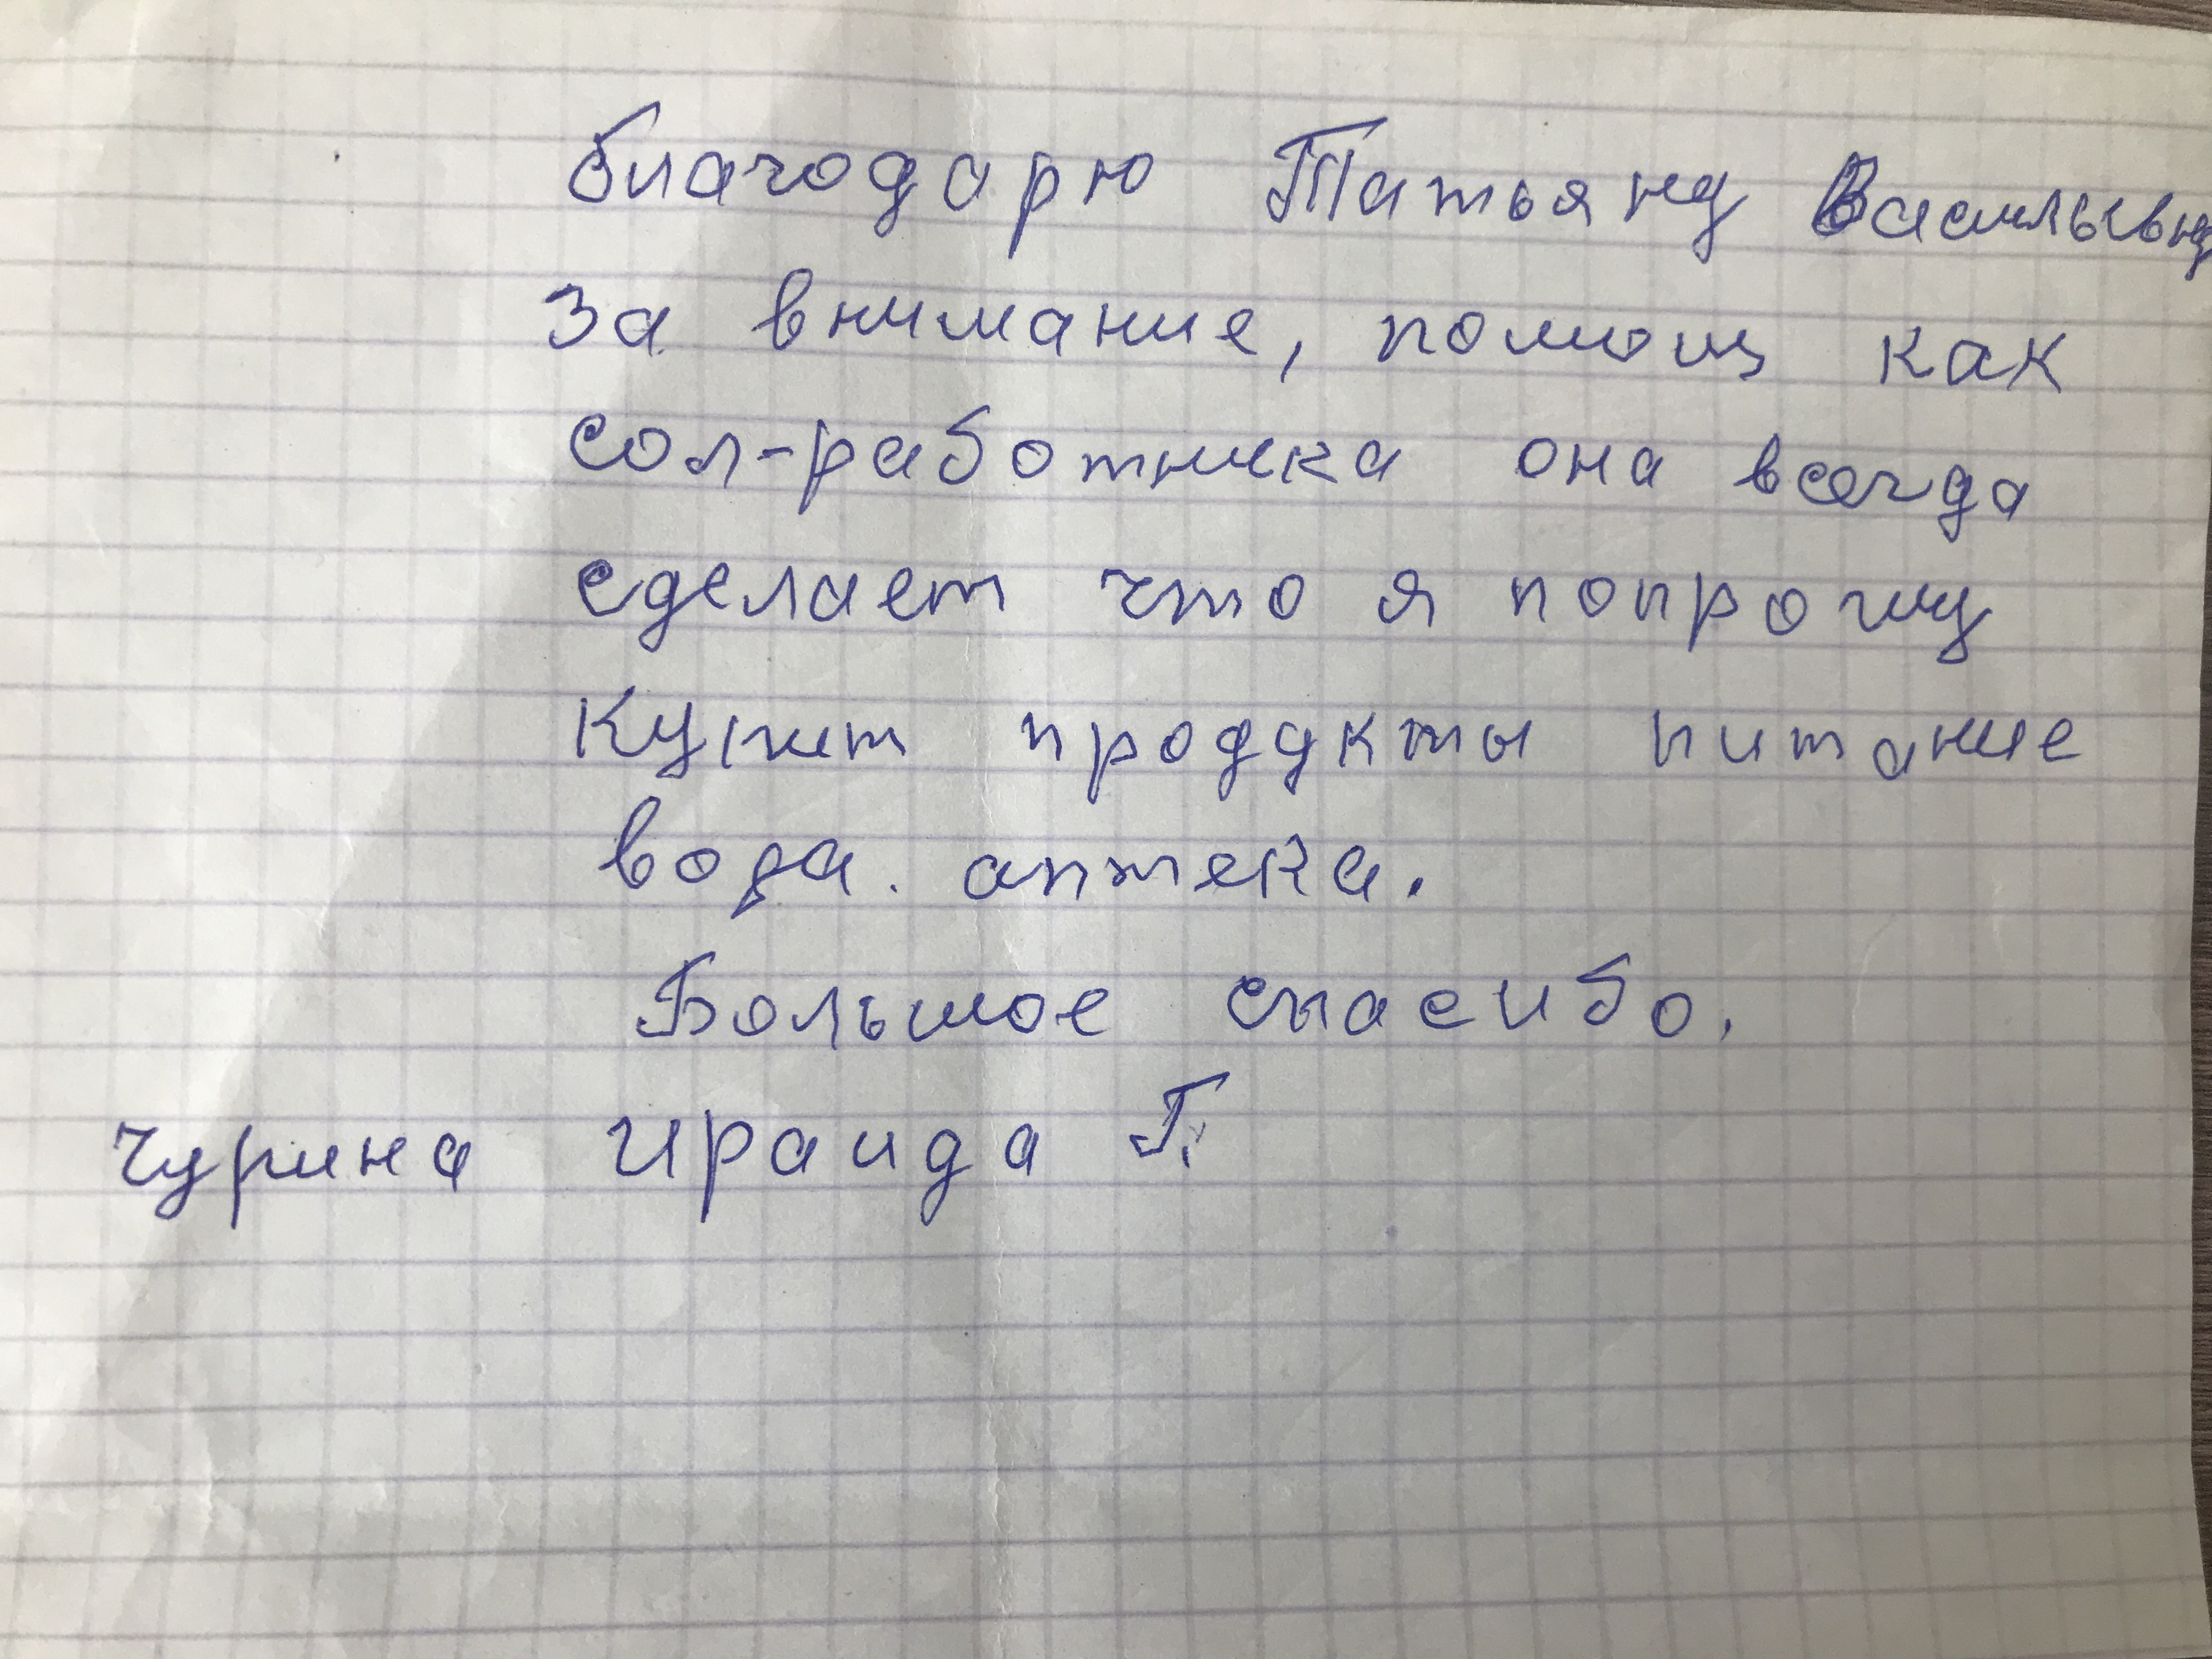 благодарю Татьяну Васильевну
За внимание, помощь как
сол-работника она всегда
сделает что я попрошу
Купит продукты питание
вода. аптека.
Большое спасибо.
Чурина Ираида Г.